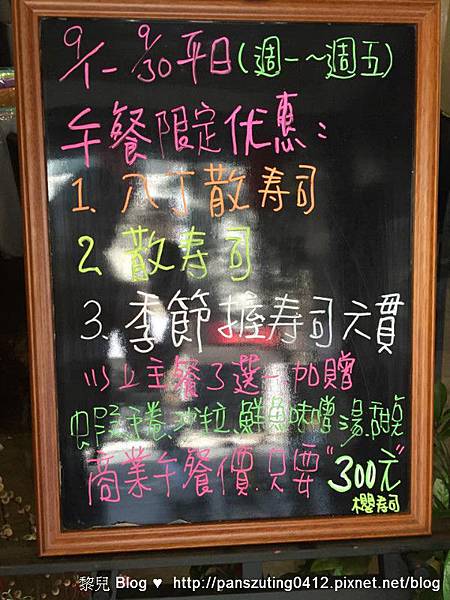 9/1-9/30平日(週一~週五)
午餐限定优惠:
1. 八丁散寿司
2. 散寿司
3. 季節握寿司六貫
以上主餐3選一加贈
手卷.沙拉.鮮魚味噌湯.甜点
商業午餐價.只要"300元"
櫻寿司
黎兒 Blog ♥ http://panszuting0412.pixnet.net/blog